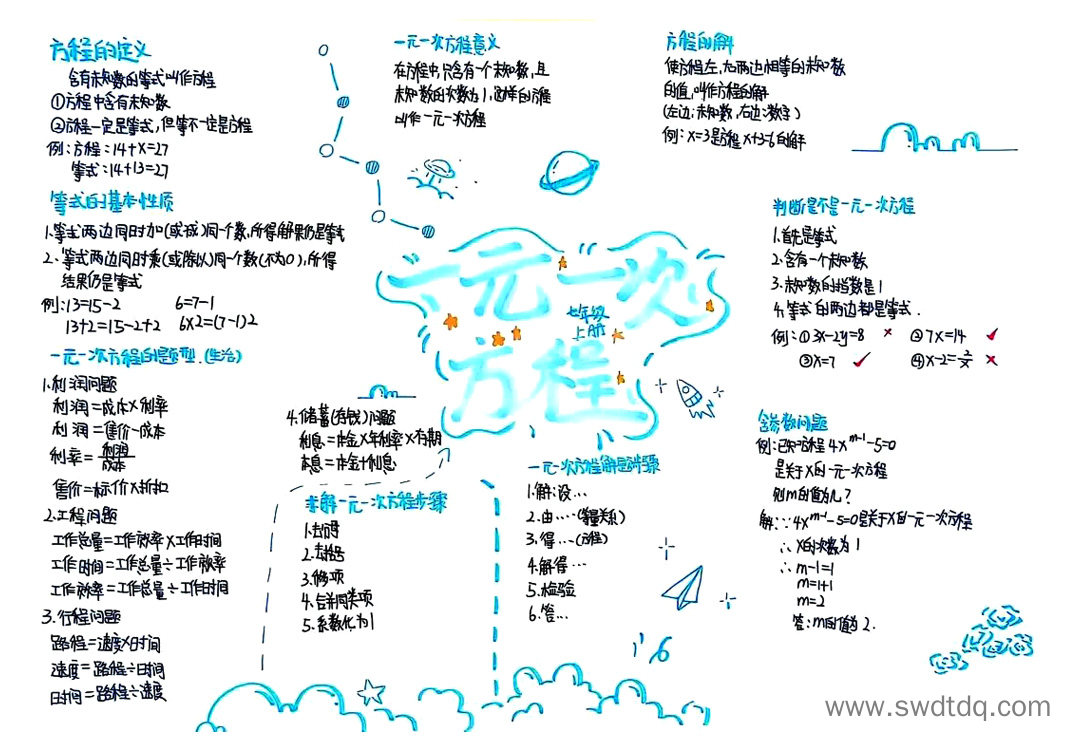 方程的定义
含有未知数的等式叫作方程
①方程中含有未知数
②方程一定是等式,但等不一定是方程
例:方程:14+x=27
等式:14+13=27
等式的基本性质
1.等式两边同时加(或减)同一个数,所得结果仍是等式
2、等式两边同时乘(或除以)同一个数(不为0),所得
结果仍是等式
例:13=15-2 6=7-1
13+2=15-2+2 6×2=(7-1)2
一元一次方程的题型.(生活)
1.利润问题
利润=成本×利率
利润=售价-成本
利率=利润/成本
售价=标价×折扣
2.工程问题
工作总量=工作效率×工作时间
工作时间=工作总量÷工作效率
工作效率=工作总量÷工作时间
3.行程问题
路程=速度×时间
速度=路程÷时间
时间=路程÷速度
4.储蓄(存钱)问题
利息=本金×年利率×存期
本息=本金+利息
求解一元一次方程步骤
1.去分母
2.去括号
3.移项
4.合并同类项
5.系数化为1
一元一次方程意义
在方程中,只含有一个未知数,且
未知数的次数为1,这样的方程
叫作一元一次方程
一元一次
方程
七年级
上册
一元一次方程解题步骤
1.解:设…
2.由……(等量关系)
3.得…(方程)
4.解得…
5.检验
6.答…
方程的解
使方程左,右两边相等的未知数
的值,叫作方程的解
(左边:未知数,右边:数字)
例:x=3是方程x+3=6的解
判断是不是一元一次方程
1.首先是等式
2.含有一个未知数
3.未知数的指数是1
4.等式的两边都是等式.
例:①3x-2y=8 × ②7x=14 ✓
③x=7 ✓ ④x-2=2/x ×
含参数问题
例:已知方程4x^(m-1)-5=0
是关于x的一元一次方程
则m的值为几?
解:∵4x^(m-1)-5=0是关于x的一元一次方程
∴x的次数为1
∴m-1=1
m=1+1
m=2
答:m的值为2.
www.swdtdq.com